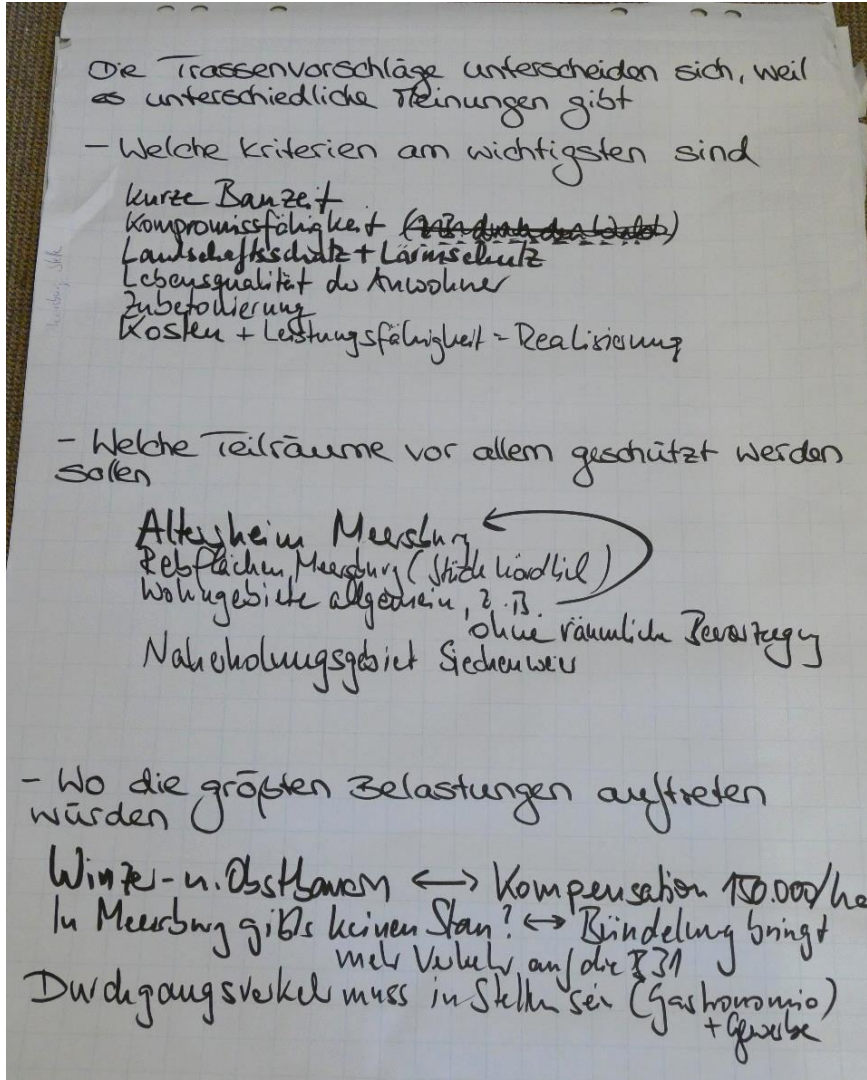 Die Trassenvorschläge unterscheiden sich, weil
es unterschiedliche Meinungen gibt
- Welche Kriterien am wichtigsten sind
Kurze Bauzeit
Kompromissfähigkeit
Landschaftsschutz + Lärmschutz
Lebensqualität der Anwohner
Zubetonierung
Kosten + Leistungsfähigkeit = Realisierung
- Welche Teilräume vor allem geschützt werden
sollen
Altersheim Meersburg
Rebflächen Meersburg
Wohngebiete allgemein, z.B.
ohne räumliche Bevorzugung
Naherholungsgebiet Siechenweier
- Wo die größten Belastungen auftreten
würden
Winzer- u. Obstbauern ↔ Kompensation 150.000/ha
In Meersburg gibts keinen Stau? ↔ Bündelung bringt
mehr Verkehr auf die B31
Durchgangsverkehr muss in sein (Gastronomie)
+ Gewerbe